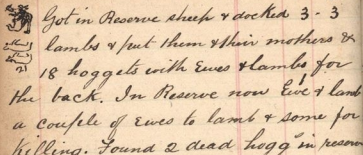 Got in Reserve sheep & docked 3-3
lambs & put them & their mothers &
18 hoggets with Ewes & lambs for
the back. In Reserve now Ewe & lamb
a couple of Ewes to lamb & some for
Killing. Found 2 dead hogg in reserve